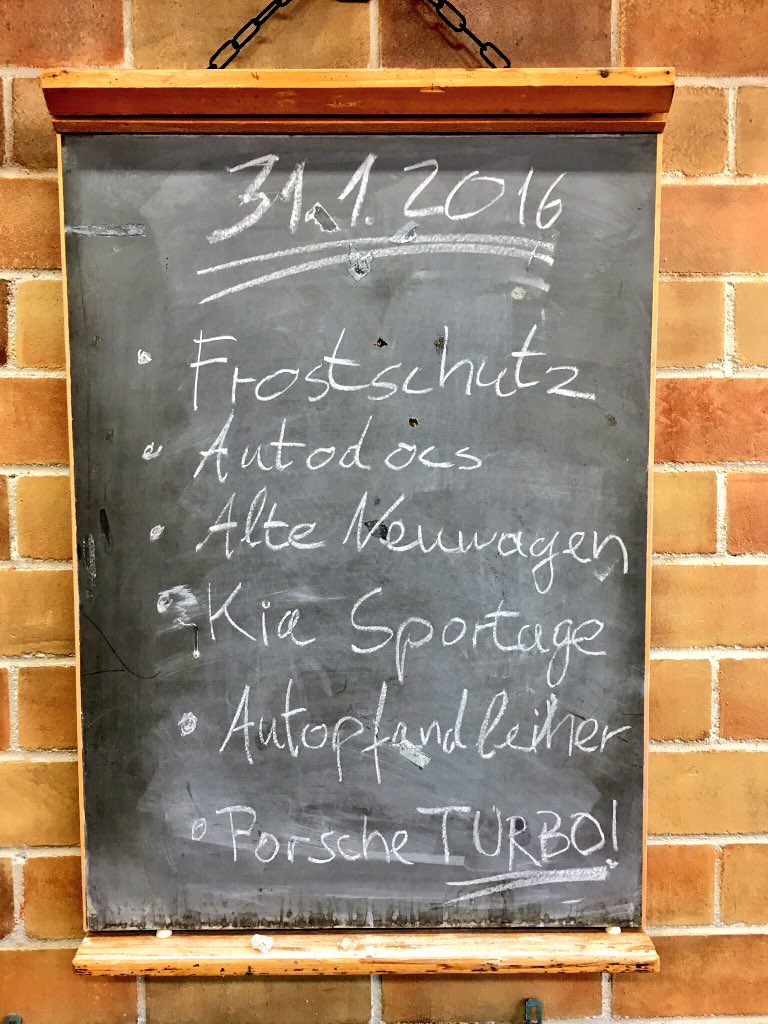 31.1.2016
• Frostschutz
• Autodocs
• Alte Neuwagen
• Kia Sportage
• Autopfandleiher
• Porsche TURBO!